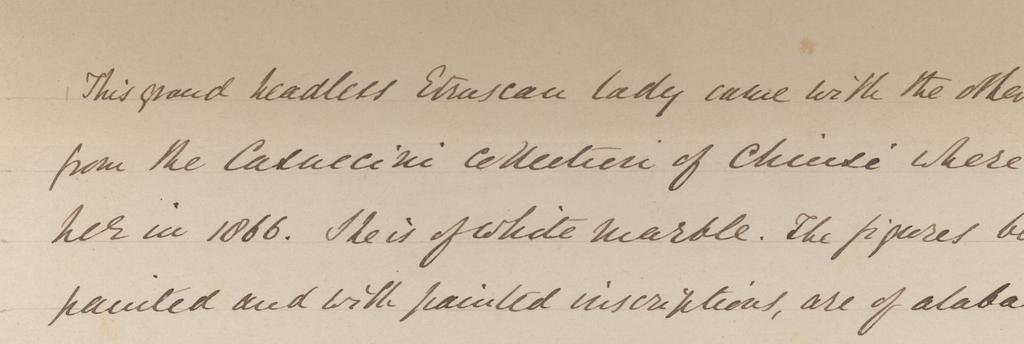 This proud headless Etruscan lady came with the other
from the Casuccini collection of Chiusi where
her in 1866. She is of white marble. The figures be
painted and with painted inscriptions, are of alaba